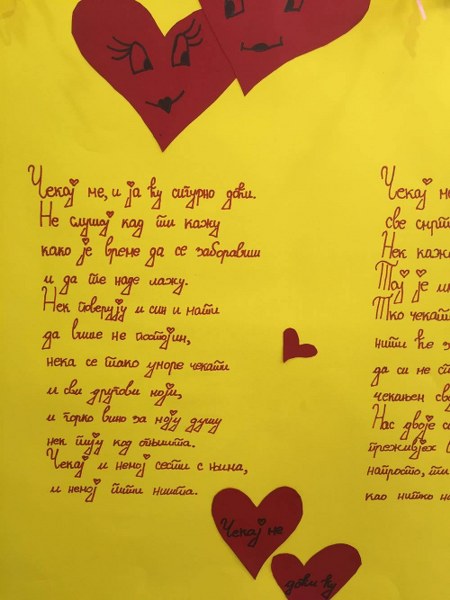 Чекај ме, и ја ћу сигурно доћи.
Не слушај кад ти кажу
како је време да се заборавиш
и да те наде лажу.
Нек поверују и син и мати
да више не постојим,
нека се тако уморе чекати
и сви другови моји,
и горко вино за моју душу
нек пију код огњишта.
Чекај и немој сести с њима,
и немој пити ништа.
Чекај м
све смрт
Нек каж
Тој је
Тко чекат
нити ће з
да си ме
чекањем св
Нас двоје с
преживјех
напросто, ти
као нитко н
Чекај ме
доћи ћу